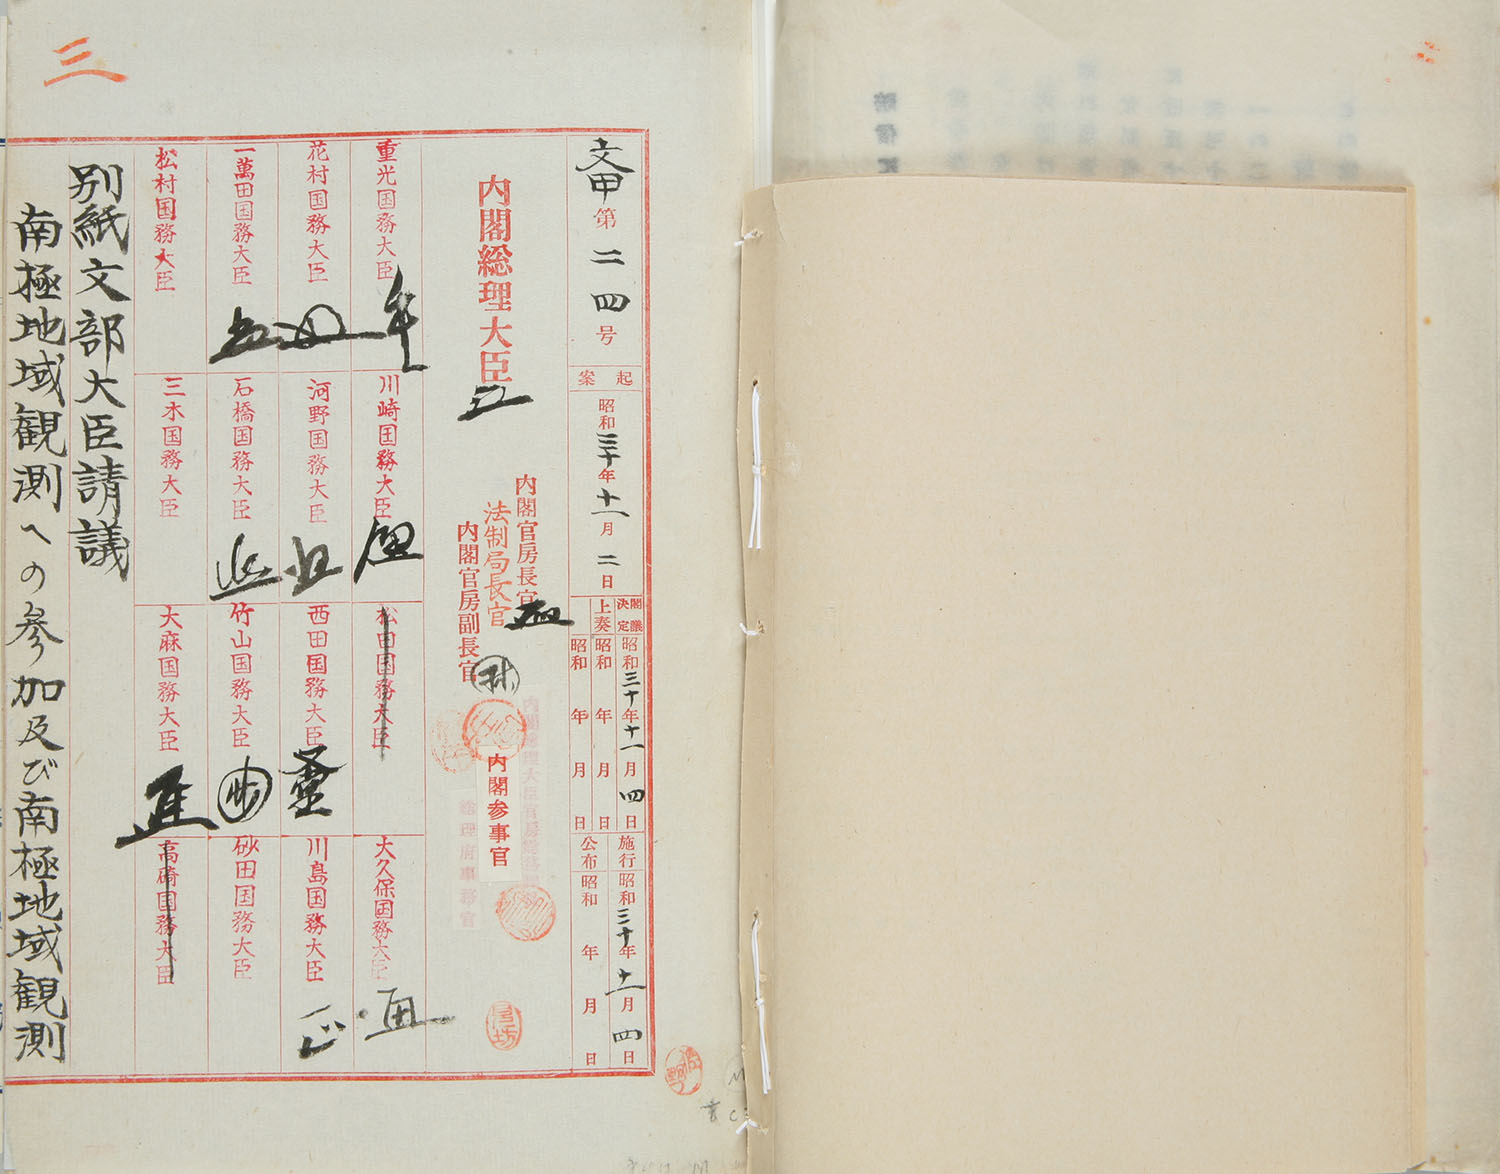 三
文甲第二四号
起案 昭和三十年十一月二日
閣議決定 昭和三十年十一月四日
上奏 昭和 年 月 日
昭和 年 月 日
施行 昭和三十年十一月四日
公布 昭和 年 月 日
内閣総理大臣
内閣官房長官
法制局長官
内閣官房副長官
内閣参事官
総理府事務官
重光国務大臣
川崎国務大臣
松田国務大臣
大久保国務大臣
花村国務大臣
河野国務大臣
西田国務大臣
川島国務大臣
一萬田国務大臣
石橋国務大臣
竹山国務大臣
砂田国務大臣
松村国務大臣
三木国務大臣
大麻国務大臣
高碕国務大臣
別紙文部大臣請議
南極地域観測への参加及び南極地域観測